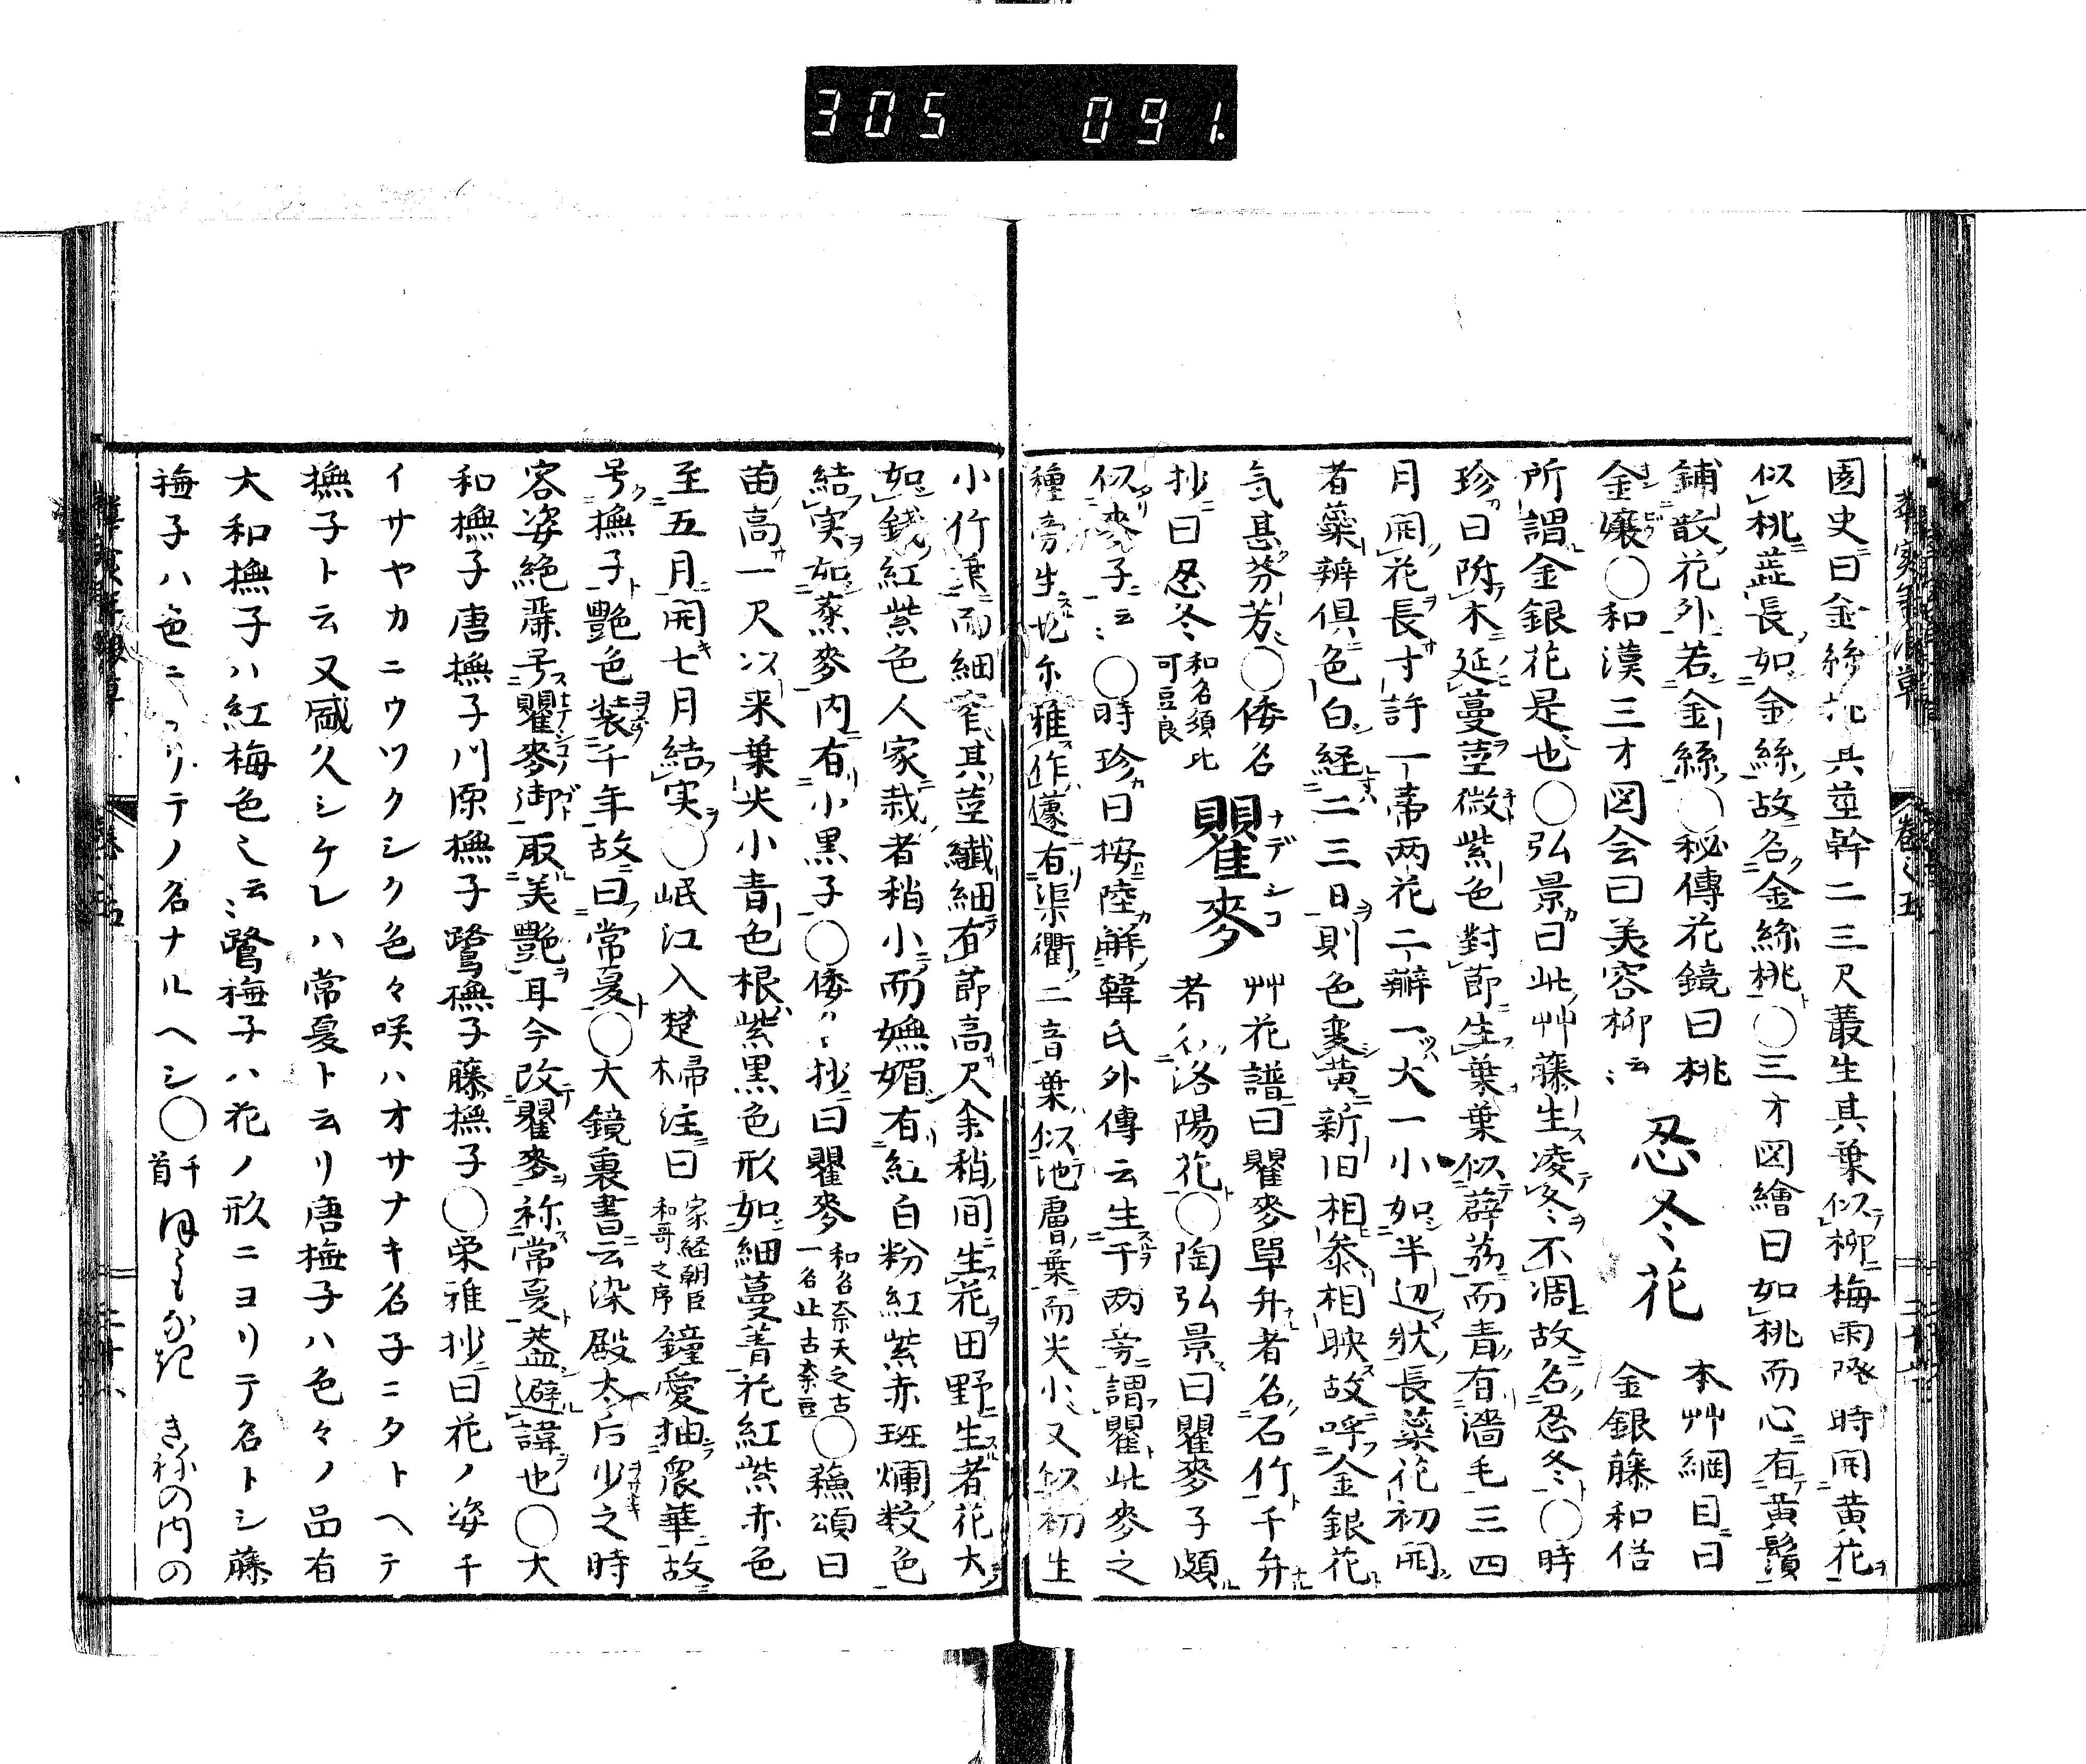 305 091.
園史曰金絲桃其莖幹二三尺叢生其葉似柳梅雨降時開黄花
似桃蕋長如金絲故名金絲桃〇三才図繪曰如桃而心有黄鬚
鋪散花外若金絲〇秘傳花鏡曰桃
金孃〇和漢三才図会曰美容柳云〻
忍冬花
本艸綱目曰
金銀藤和俗
所謂金銀花是也〇弘景曰此艸藤生凌冬不凋故名忍冬〇時
珍曰附木延蔓莖微紫色對節生葉葉似薜荔而青有濇毛三四
月開花長寸許一蒂両花二瓣一大一小如半辺状長蘂花初開
者蘂瓣倶色白経二三日則色変黄新旧相参相映故呼金銀花
気甚芬芳〇倭名
抄曰忍冬 和名須比可豆良
瞿麥 ナデシコ
艸花譜曰瞿麥單弁者名石竹千弁
者名洛陽花〇陶弘景曰瞿麥子頗
似麥子云〻〇時珍曰按陸觧韓氏外傳云生于両旁謂瞿此麥之
種旁生也尓雅作蘧有渠衢二音葉似地膚葉而尖小又似初生
小竹葉而細窄其莖纎細有節高尺余稍間生花田野生者花大
如錢紅紫色人家栽者稍小而嫵媚有紅白粉紅紫赤斑爛数色
結実如燕麥内有小黒子〇倭〻抄曰瞿麥 和名奈天之古 一名止古奈豆〇蘓頌曰
苗高一尺以来葉尖小青色根紫黒色形如細蔓菁花紅紫赤色
至五月開七月結実〇岷江入楚 帚木注曰 家経朝臣和哥之序 鐘愛抽衆華故
号撫子艶色装千年故曰常夏〇大鏡裏書云染殿太后少之時
容姿絶麗号瞿麥御取美艶耳今改瞿麥称常夏葢避諱也〇大
和撫子唐撫子川原撫子鷺撫子藤撫子〇栄雅抄曰花ノ姿チ
イサヤカニウツクシク色々咲ハオサナキ名子ニタトヘテ
撫子ト云又盛久シケレハ常夏ト云リ唐撫子ハ色々ノ品有
大和撫子ハ紅梅色也云〻鷺撫子ハ花ノ形ニヨリテ名トシ藤
撫子ハ色ニヨリテノ名ナルヘシ〇千首 きねの内の